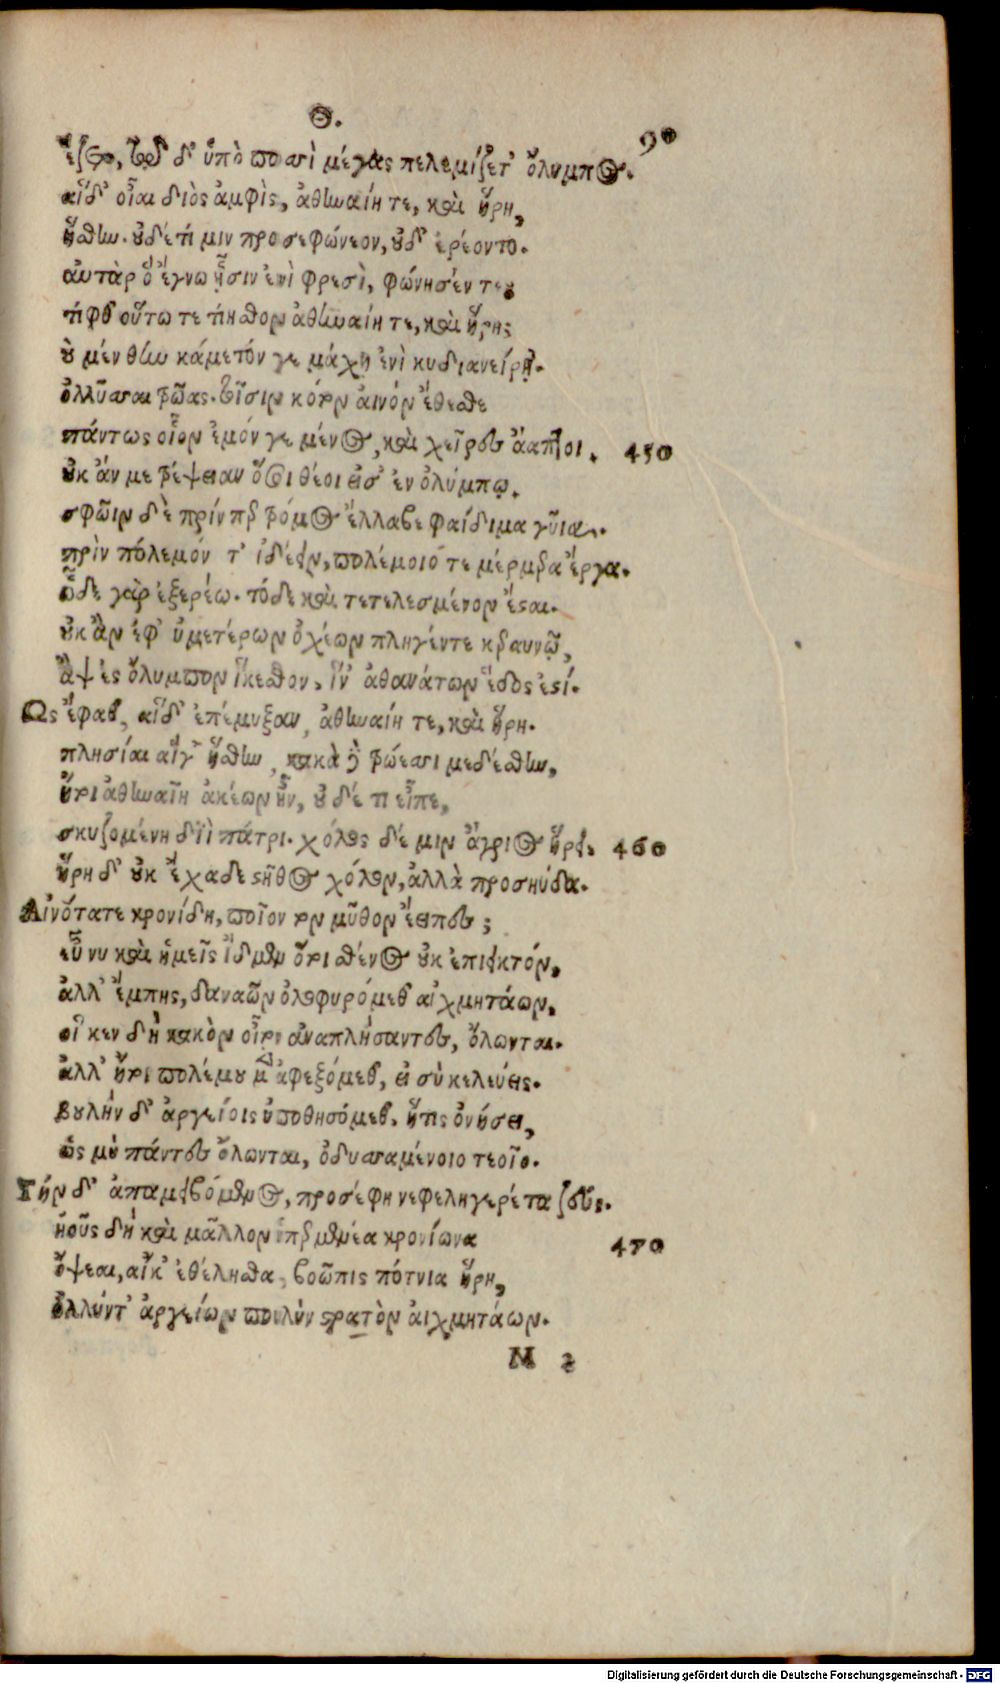 Θ.
90
ἕζετο, τῷ δ' ὑπὸ ποσσὶ μέγας πελεμίζετ' ὄλυμπος.
αἱ δ' οἶαι διὸς ἀμφὶς, ἀθηναίη τε, καὶ ἥρη,
ἥσθην. οὐδέ τί μιν προσεφώνεον, οὐδ' ἐρέοντο.
αὐτὰρ ὁ ἔγνω ᾗσιν ἐνὶ φρεσὶ, φώνησέν τε,
τίφθ' οὕτω τετίησθον ἀθηναίη τε, καὶ ἥρη;
οὐ μέν θην κάμετόν γε μάχῃ ἐνὶ κυδιανείρῃ.
ὀλλῦσαι τρῶας. τοῖσιν κότον αἰνὸν ἔθεσθε
πάντως οἷον ἐμόν γε μένος, καὶ χεῖρες ἄαπτοι. 450
οὐκ ἄν με τρέψειαν ὅσοι θεοί εἰσ' ἐν ὀλύμπῳ.
σφῶιν δὲ πρίν περ τρόμος ἔλλαβε φαίδιμα γυῖα.
πρὶν πόλεμόν τ' ἰδέειν, πολέμοιό τε μέρμερα ἔργα.
ὧδε γὰρ ἐξερέω. τόδε καὶ τετελεσμένον ἔσται.
οὐκ ἂν ἐφ' ὑμετέρων ὀχέων πληγέντε κεραυνῷ,
ἂψ ἐς ὄλυμπον ἵκεσθον, ἵν' ἀθανάτων ἕδος ἐστί.
Ως ἔφαθ', αἱ δ' ἐπέμυξαν, ἀθηναίη τε, καὶ ἥρη.
πλησίαι αἵγ' ἥσθην, κακὰ δὲ τρώεσσι μεδέσθην,
ἤτοι ἀθηναῖη ἀκέων ἦν, οὐδέ τι εἶπε,
σκυζομένη διῒ πάτρι. χόλος δέ μιν ἄγριος ᾕρει. 460
ἥρη δ' οὐκ ἔχαδε στῆθος χόλον, ἀλλὰ προσηύδα.
Αἰνότατε κρονίδη, ποῖον τὸν μῦθον ἔειπες;
εὖ νυ καὶ ἡμεῖς ἴδμεν ὅτοι σθένος οὐκ ἐπιεικτόν,
ἀλλ' ἔμπης, δαναῶν ὀλοφυρόμεθ' αἰχμητάων,
οἵ κεν δὴ κακὸν οἶτον ἀναπλήσαντες, ὄλωνται.
ἀλλ' ἤτοι πολέμου μὲν ἀφεξόμεθ', εἰ σὺ κελεύεις.
βουλὴν δ' ἀργείοις ὑποθησόμεθ'. ἥτις ὀνήσει,
ὡς μὴ πάντες ὄλωνται, ὀδυσσαμένοιο τεοῖο.
Τὴν δ' ἀπαμειβόμενος, προσέφη νεφεληγερέτα ζεύς.
ἠοῦς δὴ καὶ μᾶλλον ὑπερμενέα κρονίωνα 470
ὄψεαι, αἴ κ' ἐθέλησθα, βοῶπις πότνια ἥρη,
ὀλλύντ' ἀργείων πουλὺν στρατὸν αἰχμητάων.
M 2
Digitalisierung gefördert durch die Deutsche Forschungsgemeinschaft - DFG